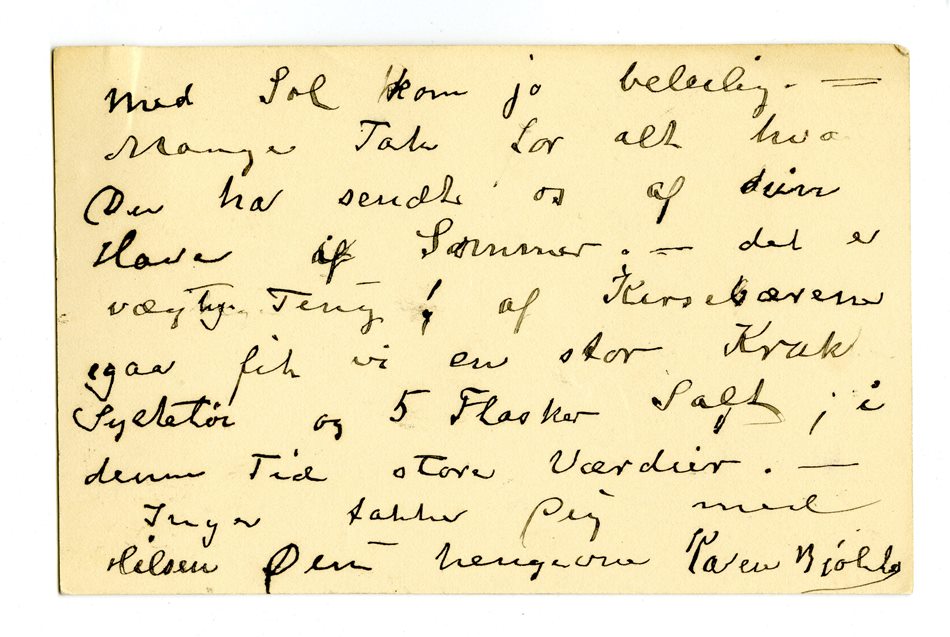 med Sol kom jo beleilig. —
Mange Tak for alt hva
Du har sendt os af din
Have i Sommer. — det er
vægtige Ting! af Kirsebærene
fik vi en stor Kruk
Syltetøi og 5 Flasker Saft; i
denne Tid store Værdier. —
Inger takker Dig med
Hilsen Din hengivne Karen Bjølke